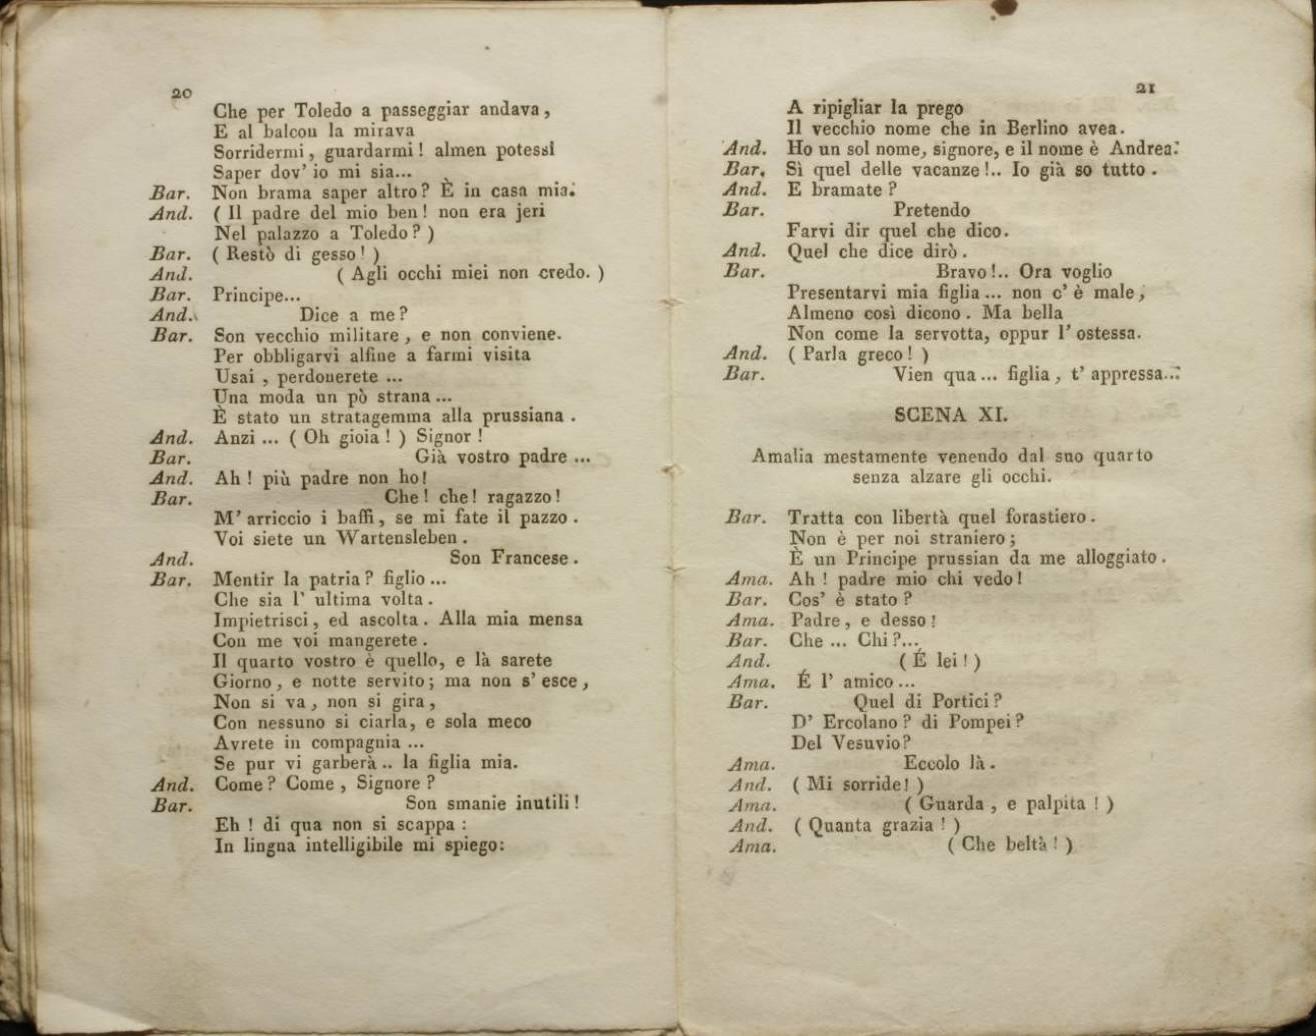 20
Che per Toledo a passeggiar andava,
E al balcon la mirava
Sorridermi, guardarmi! almen potessi
Saper dov' io mi sia...
Bar. Non brama saper altro? È in casa mia.
And. ( Il padre del mio ben! non era jeri
Nel palazzo a Toledo? )
Bar. ( Restò di gesso! )
And. ( Agli occhi miei non credo. )
Bar. Principe...
And. Dice a me?
Bar. Son vecchio militare, e non conviene.
Per obbligarvi alfine a farmi visita
Usai, perdonerete ...
Una moda un pò strana ...
È stato un stratagemma alla prussiana.
And. Anzi ... ( Oh gioia! ) Signor!
Bar. Già vostro padre ...
And. Ah! più padre non ho!
Bar. Che! che! ragazzo!
M' arriccio i baffi, se mi fate il pazzo.
Voi siete un Wartensleben.
And. Son Francese.
Bar. Mentir la patria? figlio ...
Che sia l' ultima volta.
Impietrisci, ed ascolta. Alla mia mensa
Con me voi mangerete.
Il quarto vostro è quello, e là sarete
Giorno, e notte servito; ma non s' esce,
Non si va, non si gira,
Con nessuno si ciarla, e sola meco
Avrete in compagnia ...
Se pur vi garberà .. la figlia mia.
And. Come? Come, Signore?
Bar. Son smanie inutili!
Eh! di qua non si scappa:
In lingua intelligibile mi spiego:
21
A ripigliar la prego
Il vecchio nome che in Berlino avea.
And. Ho un sol nome, signore, e il nome è Andrea.
Bar. Sì quel delle vacanze!.. Io già so tutto.
And. E bramate?
Bar. Pretendo
Farvi dir quel che dico.
And. Quel che dice dirò.
Bar. Bravo!.. Ora voglio
Presentarvi mia figlia ... non c' è male,
Almeno così dicono. Ma bella
Non come la servotta, oppur l' ostessa.
And. ( Parla greco! )
Bar. Vien qua ... figlia, t' appressa...
SCENA XI.
Amalia mestamente venendo dal suo quarto
senza alzare gli occhi.
Bar. Tratta con libertà quel forastiero.
Non è per noi straniero;
È un Principe prussian da me alloggiato.
Ama. Ah! padre mio chi vedo!
Bar. Cos' è stato?
Ama. Padre, e desso!
Bar. Che ... Chi?...
And. ( É lei! )
Ama. É l' amico ...
Bar. Quel di Portici?
D' Ercolano? di Pompei?
Del Vesuvio?
Ama. Eccolo là.
And. ( Mi sorride! )
Ama. ( Guarda, e palpita! )
And. ( Quanta grazia! )
Ama. ( Che beltà! )